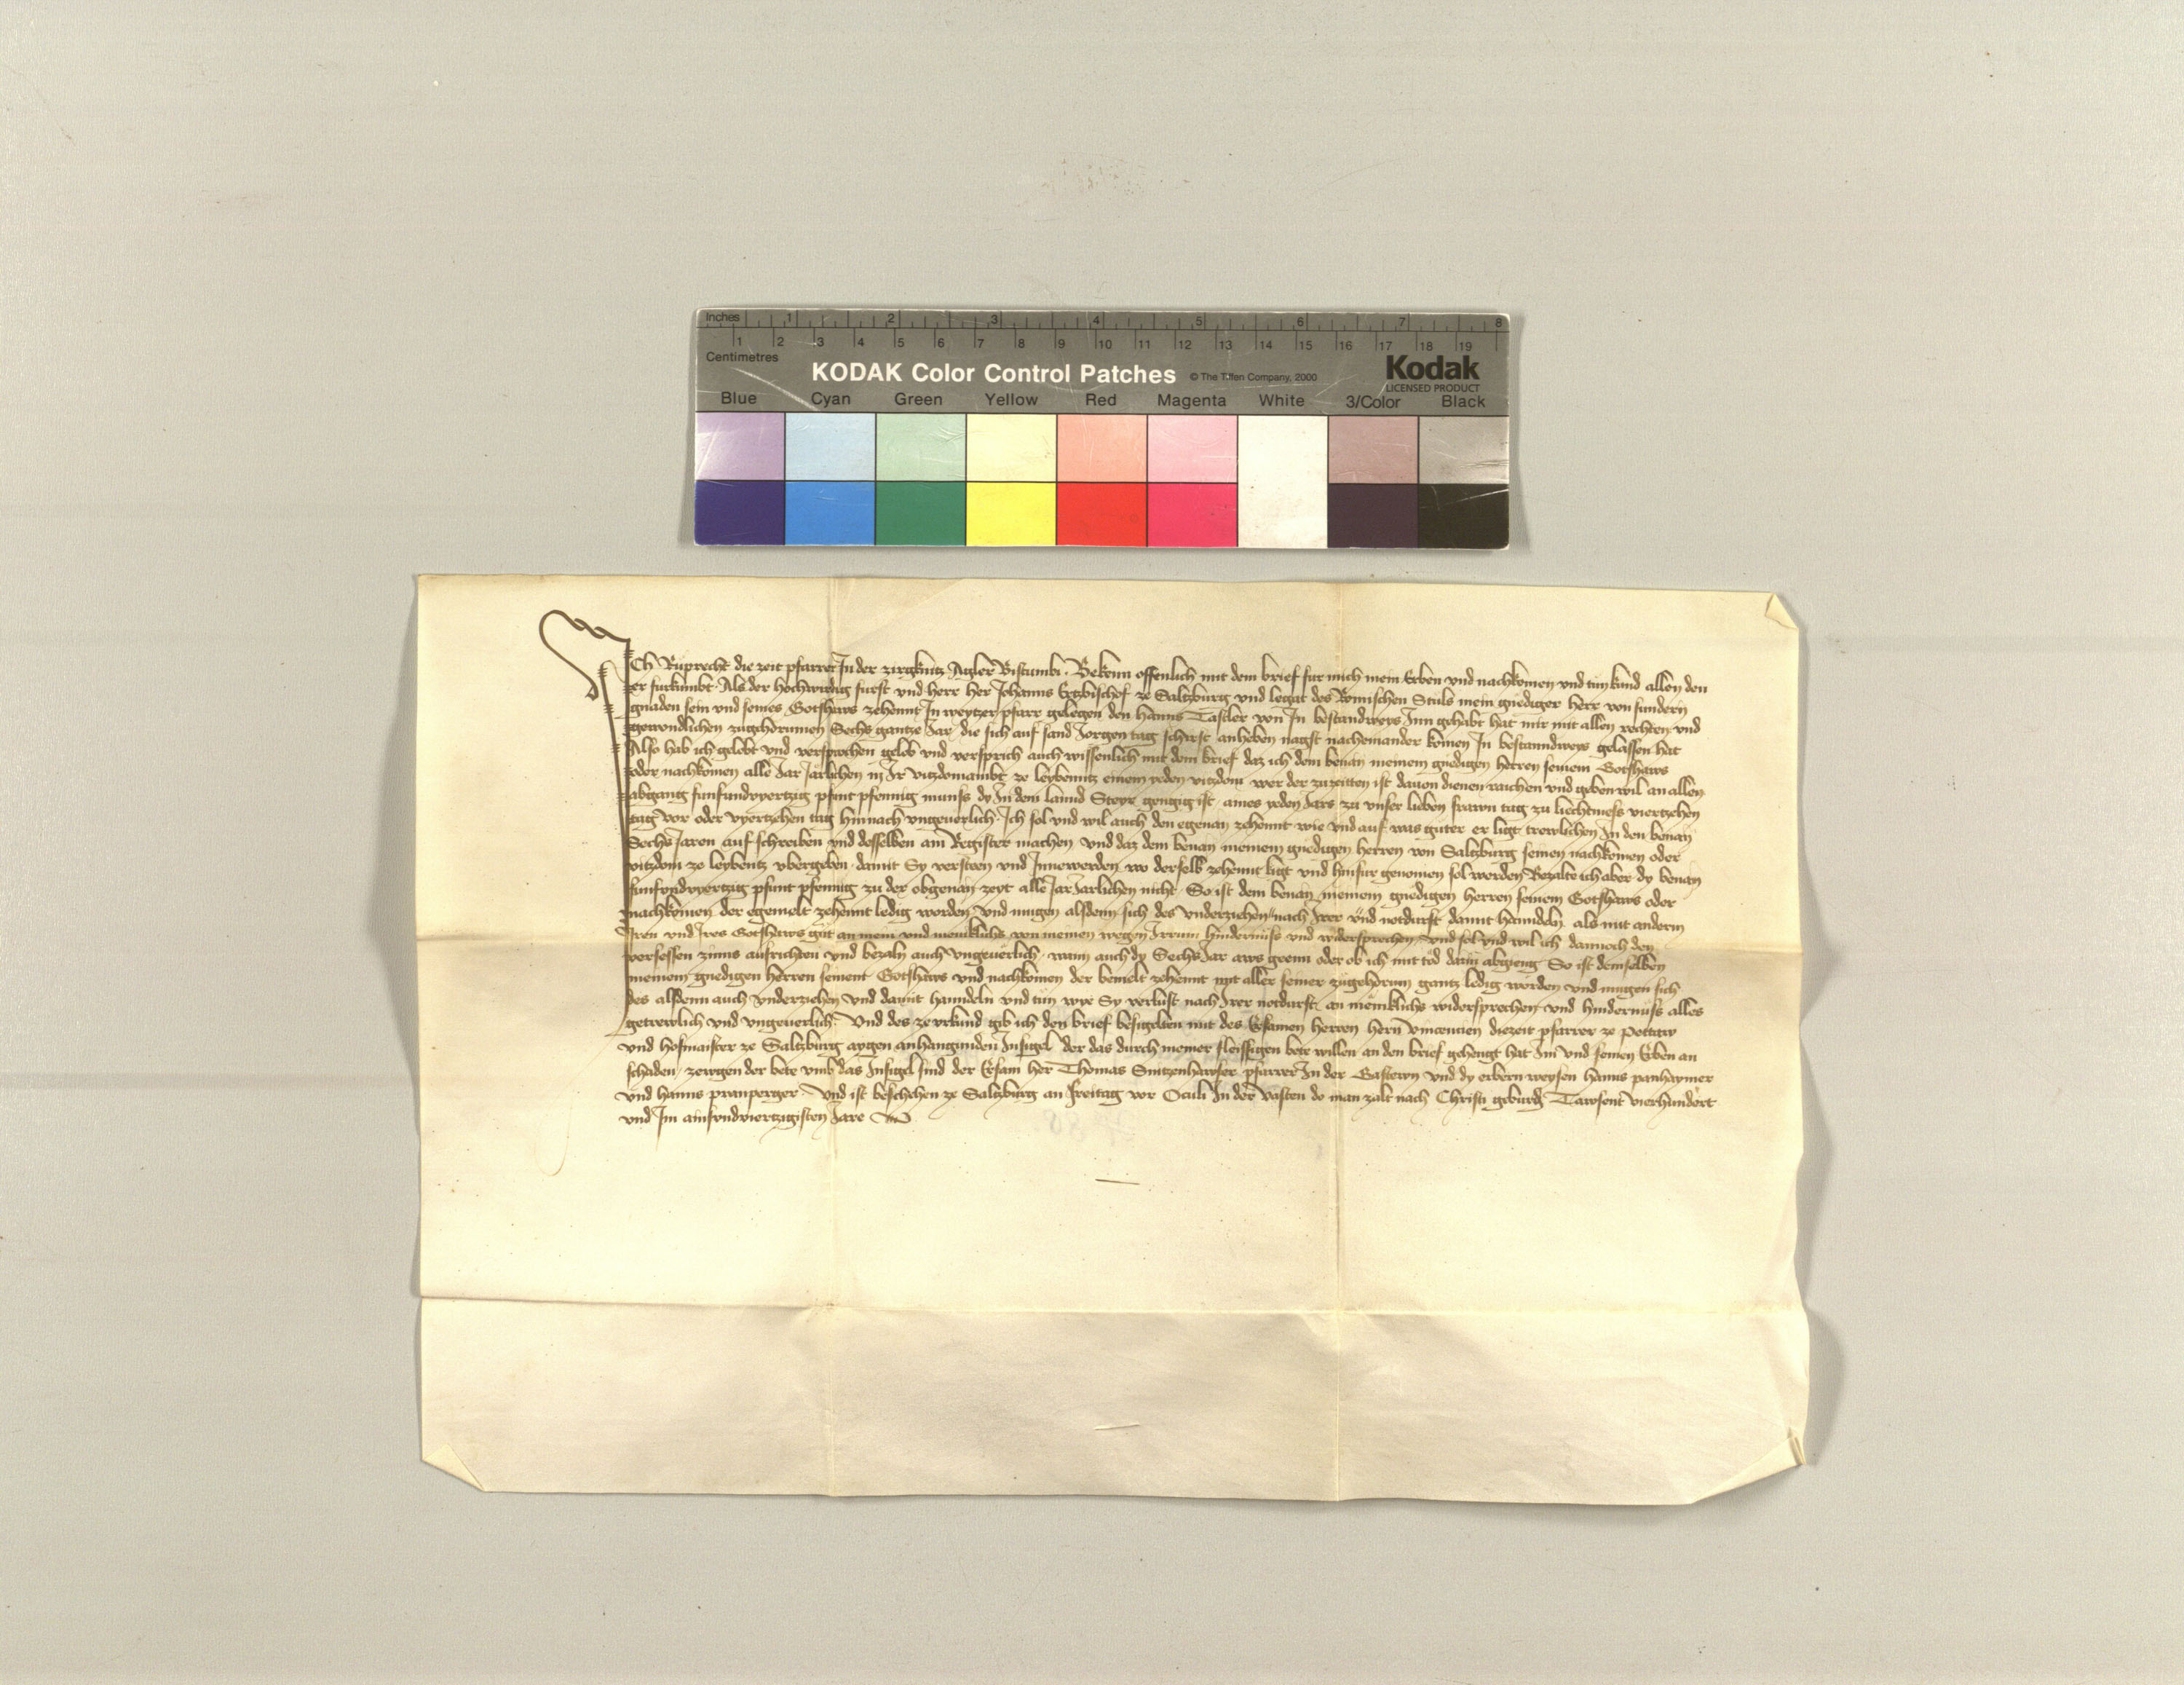 Inches 1 2 3 4 5 6 7 8
1 2 3 4 5 6 7 8 9 10 11 12 13 14 15 16 17 18 19
Centimetres
KODAK Color Control Patches © The Tiffen Company, 2000 Kodak
LICENSED PRODUCT
Blue Cyan Green Yellow Red Magenta White 3/Color Black
Ich Ruprecht die zeit pfarrer In der zirgknitz Agler Bistumbs Bekenn offenlich mit dem brief fur mich mein Erben und nachkomen und tun kund allen den
er furkumbt Als der hochwirdig furst und herr her Johanns Ertzbischof ze Saltzburg und legat des Romischen Stuls mein gnediger herr von sundern
gnaden sein und seines Gotshaws zehennt In weytzer pfarr gelegen den hanns Tasler von In bestandweys Inn gehabt hat mir mit allen rechten und
gewondlichen zugehorunnen Sechs gantze Jar die sich auf sand Jorgen tag schirst anheben nagst nacheinander komen In bestanndweys gelassen hat
Also hab ich gelobt und versprochen gelob und versprich auch wissenlich mit dem brief daz ich dem benan meinem gnedigen herren seinem Gotshaws
oder nachkomen alle Jar Jarlichen in Ir vitzdomambt ze leybenntz einem yeden vitzdom wer der zuzeitten ist dauon dienen raichen und geben wil an allen
abgang funfundvyertzig pfunt pfennig munss dy In dem lannd Steyr gengig ist aines yeden Jars zu unser lieben frawn tag zu liechtmess viertzehen
tag vor oder vyertzehen tag hinnach ungeuerlich Ich sol und wil auch den egenan zehennt wie und auf was guter er ligt trewlichen In den benan
Sechs Jaren auf schreiben und desselben ain Register machen und daz dem benan meinem gnedigen herren von Saltzburg seinen nachkomen oder
vitzdom ze leybentz ubergeben damit Sy versteen und Innewerden wo derselb zehennt ligt und hinfur genomen sol werden Bezalte ich aber dy benan
funfvndvyertzig pfunt pfennig zu der obgenan zeyt alle Jar Jarlichen nicht So ist dem benan meinem gnedigen herren seinem Gotshaws oder
nachkomen der egemelt zehennt ledig worden und mugen alsdenn sich des vnderziehen nach Irer und notdurft damit hanndeln als mit andern
Iren und Ires Gotshaws gut an mein und meniklichs von meinen wegen Irrum hindernuss und widersprechen und sol und wil ich dannoch den
versessen zinns ausrichten und bezaln auch ungeuerlich wann auch dy Sechs Jar aws geenn oder ob ich mit tod darin abgieng So ist demselben
meinem gnedigen herren seinem Gotshaws und nachkomen der bemelt zehennt mit aller seiner zugehorum gantz ledig worden und mugen sich
des alsdenn auch vnderziehen und damit hanndeln und tun wye Sy verlust nach Irer notdurft an meniklichs widersprechen und hindernuss alles
getrewlich und ungeuerlich Und des ze vrkund gib ich den brief besigelten mit des Ersamen herren hern vincencien diezeit pfarrer ze pettaw
und hofmaister ze Saltzburg aygen anhangunden Insigel der das durch meiner fleissigen bete willen an den brief gehengt hat Im und seinen Erben an
schaden zewgen der bete umb das Insigel sind der Ersam her Thomas Smtzenhawser pfarrer In der Gastewn und dy erbern weysen hanns panhaymer
und hanns pramperger Und ist beschehen ze Saltzburg an freitag vor Oculi In der vasten do man zalt nach Christi geburd Tawsent vierhundert
und Im ainsvndviertzigisten Jare